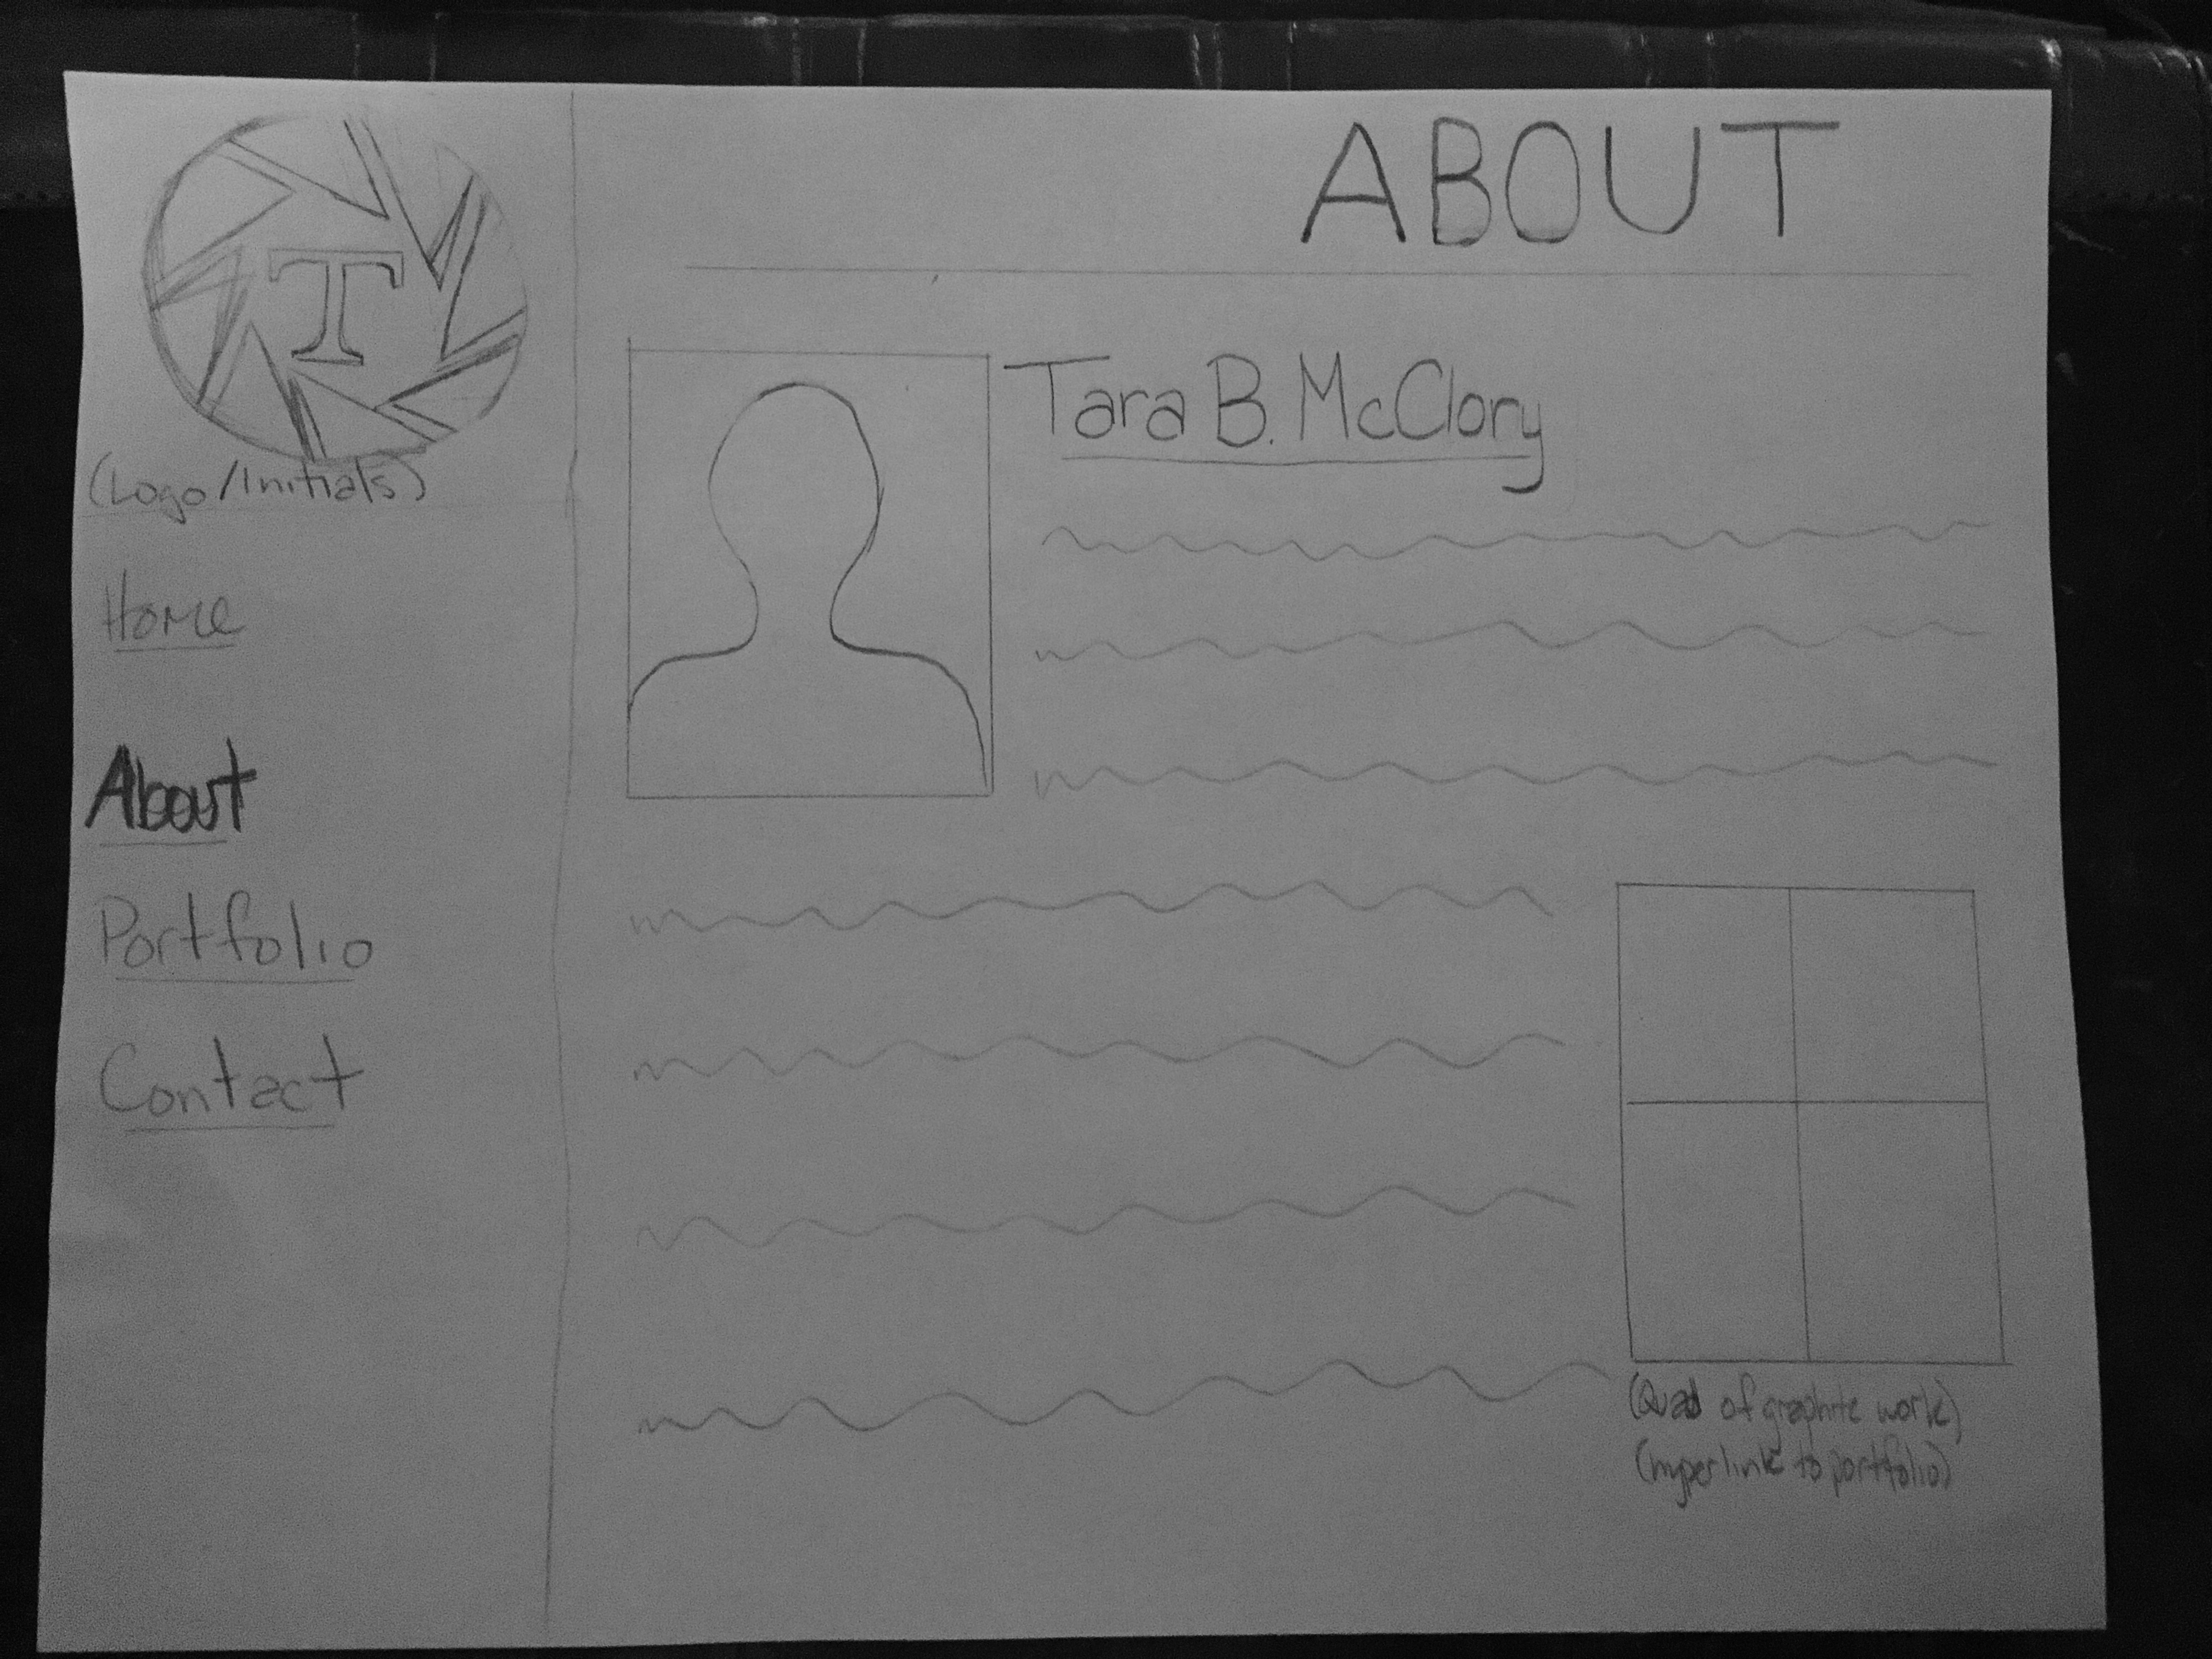 T
(Logo/Initials)
Home
About
Portfolio
Contact
ABOUT
Tara B. McClory
(Quad of graphite work)
(hyperlink to portfolio)